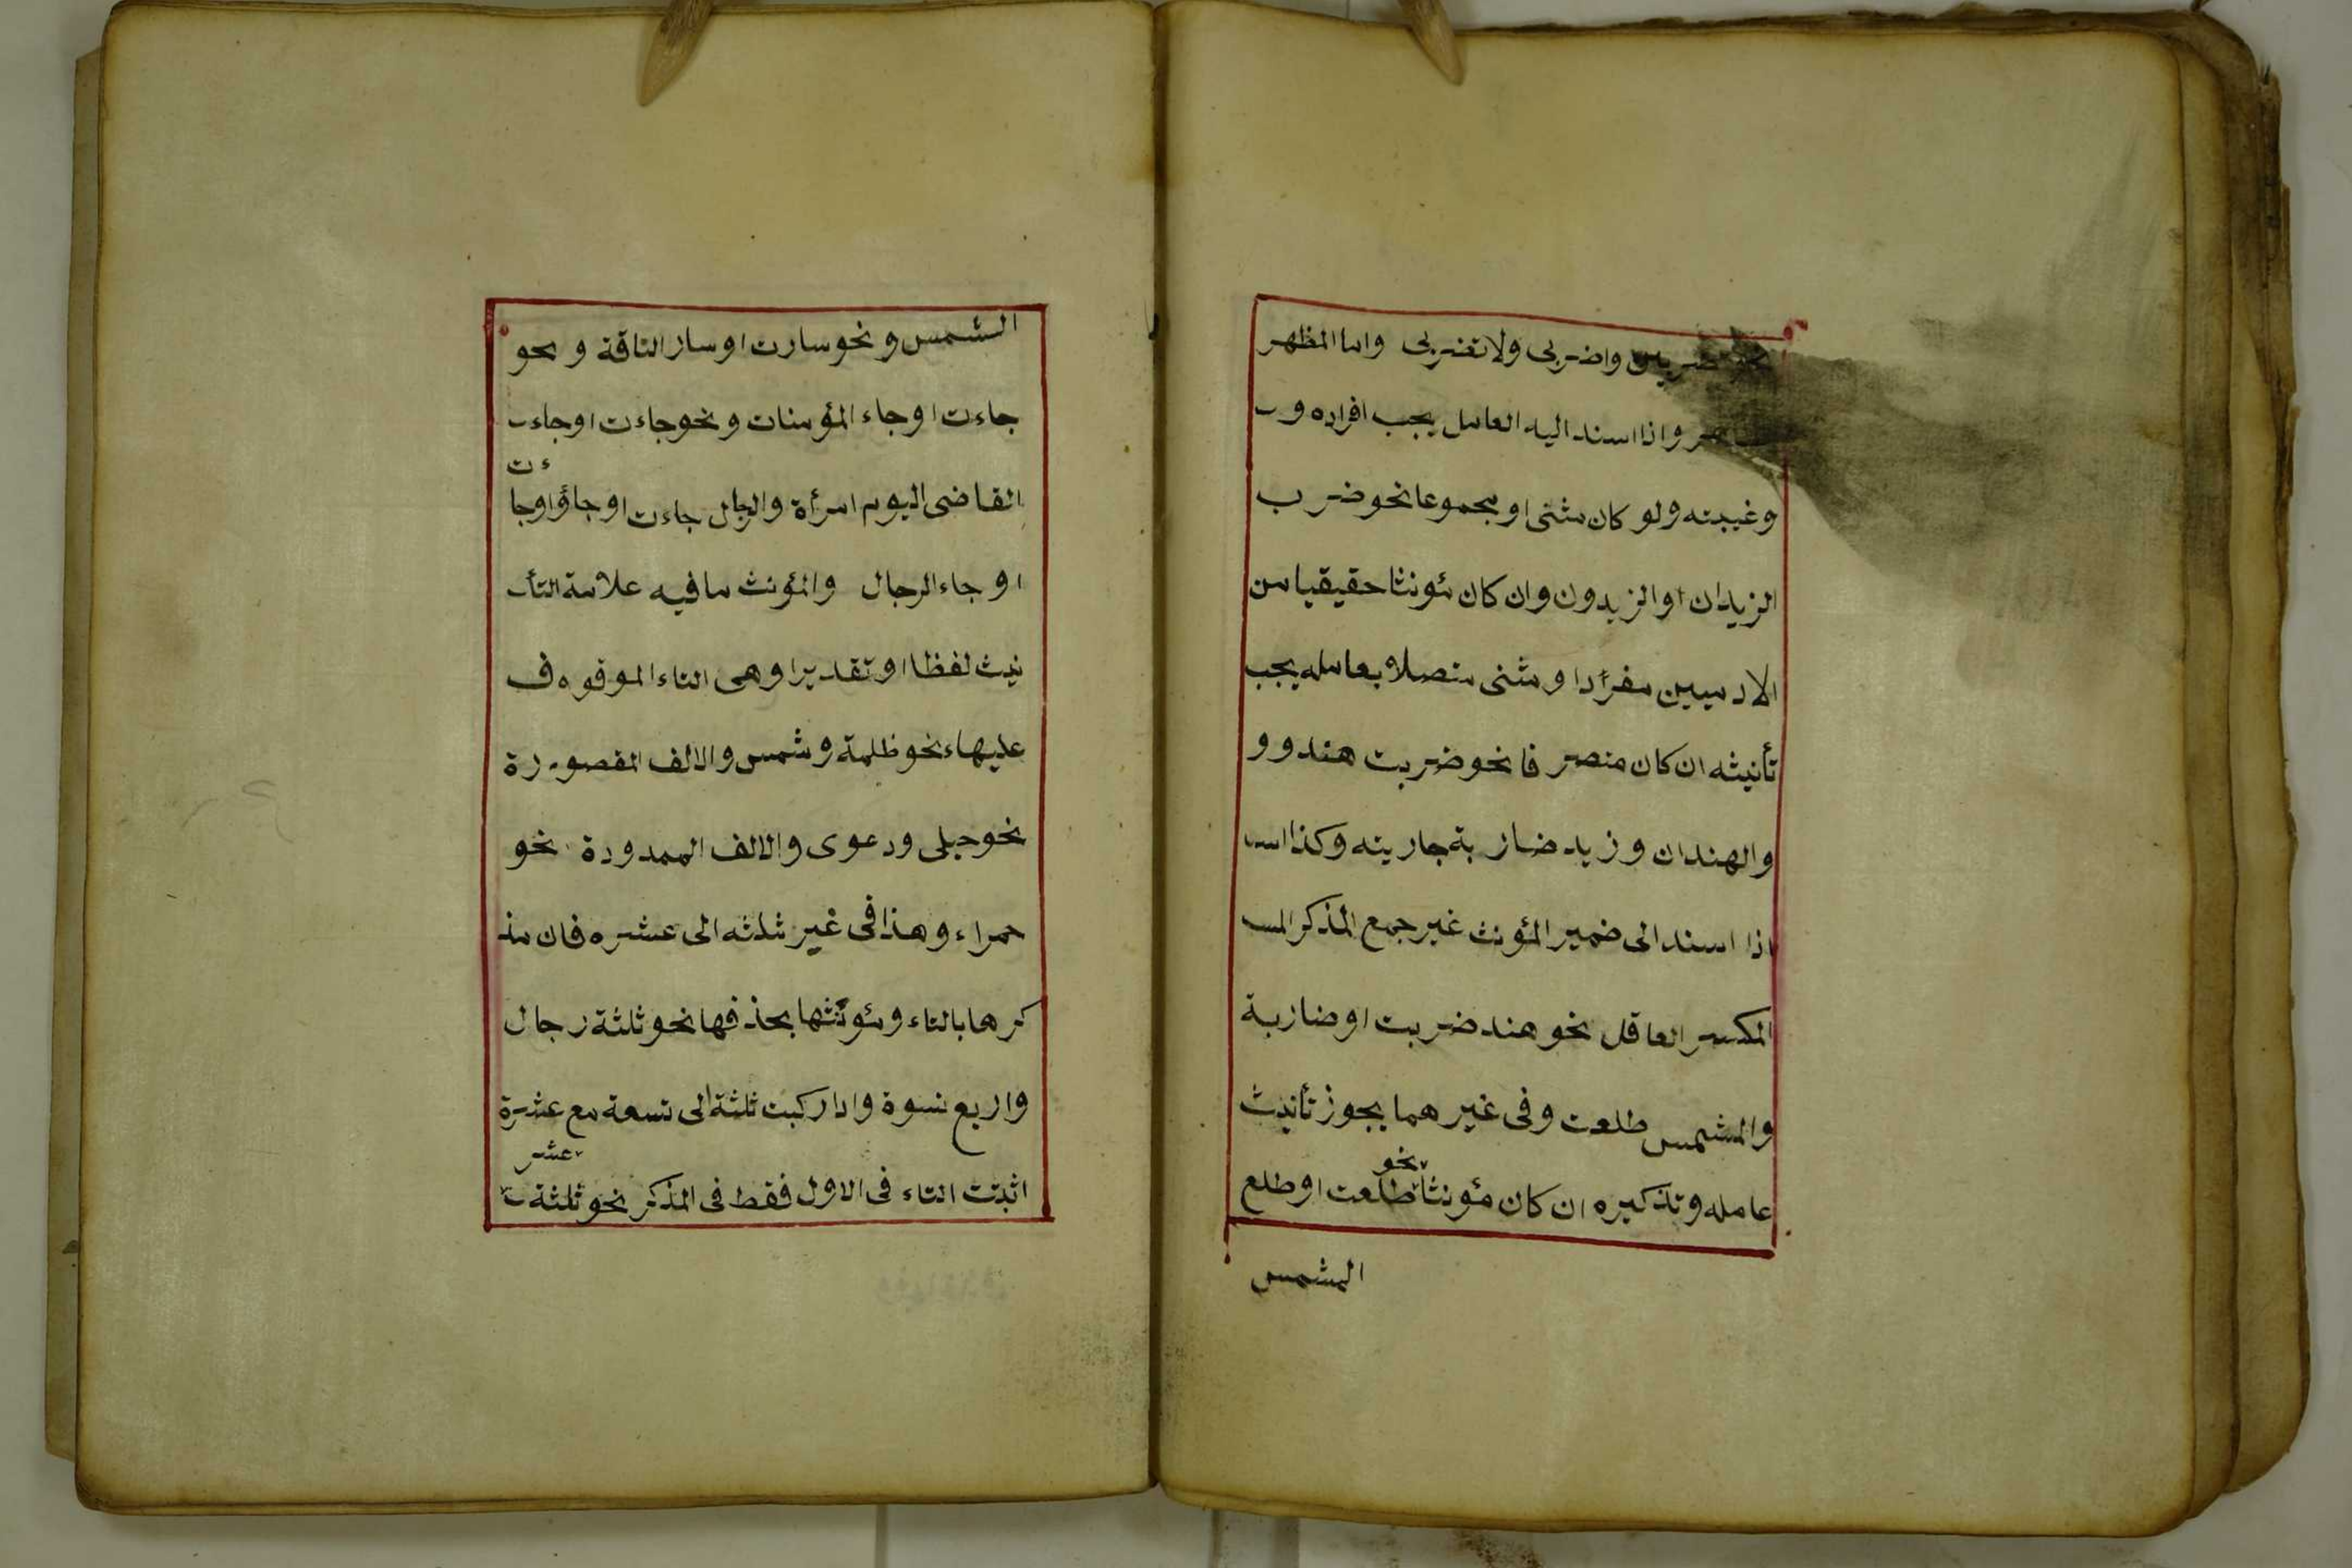 نحو تضربين واضربى ولا تضربى واما المظهر
واذا اسند اليه العامل يجب افراده و
وغيبته ولو كان مثنى او مجموعا نحو ضرب
الزيدان او الزيدون وان كان مئونثا حقيقيا من
الادميين مفرأدا و مثنى متصلا بعامله يجب
تأنيثه ان كان متصر فا نحو ضربت هند و و
والهندان و زيد ضاربة جاريته وكذا اسـ
اذا اسند الى ضمير المؤنث غير جمع المذكر المسـ
المكسر العاقل نحو هند ضربت او ضاربة
والشمس طلعت وفى غير هما يجوز تأنيث
نحو
عامله و تذكيره ان كان مئونثا طلعت او طلع
الشمس
الشمس و نحو سارت او سار الناقة و نحو
جاءت او جاء المؤمنات و نحو جاءت او جاء
ءت
القاضى اليوم امرأة والرجال جاءت او جاؤا وجا
او جاء الرجال والمؤنث ما فيه علامة التأ
نيث لفظا او تقديرا وهى التاء الموقوه ف
عليهاء نحو ظلمة و شمس والالف المقصورة
نحو حبلى ودعوى والالف الممدودة نحو
حمراء وهذا فى غير ثلثه الى عشره فان مذ
كر ها بالتاء و مئونثها بحذفها نحو ثلثة رجال
واربع نسوة واذا ركبت ثلثة الى تسعة مع عشرة
عشر
اثبتت التاء فى الاول فقط فى المذكر نحو ثلثة